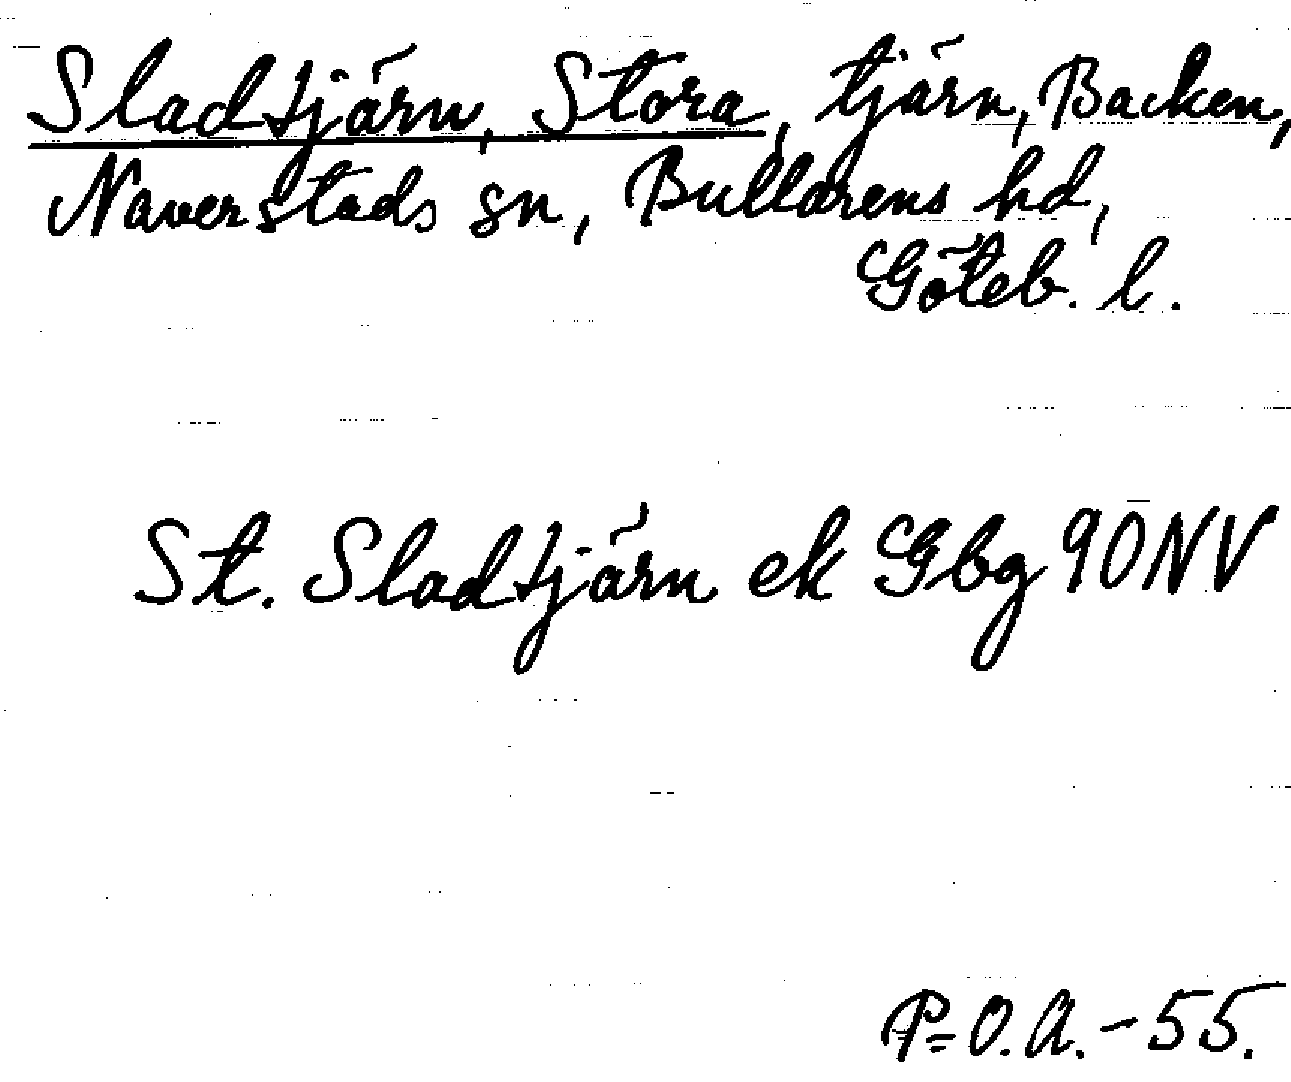 Sladtjärn, Stora, tjärn, Backen,
Naverstads sn, Bullarens hd,
Göteb. l.
St. Sladtjärn ek Gbg 90NV
P=O.A.-55.